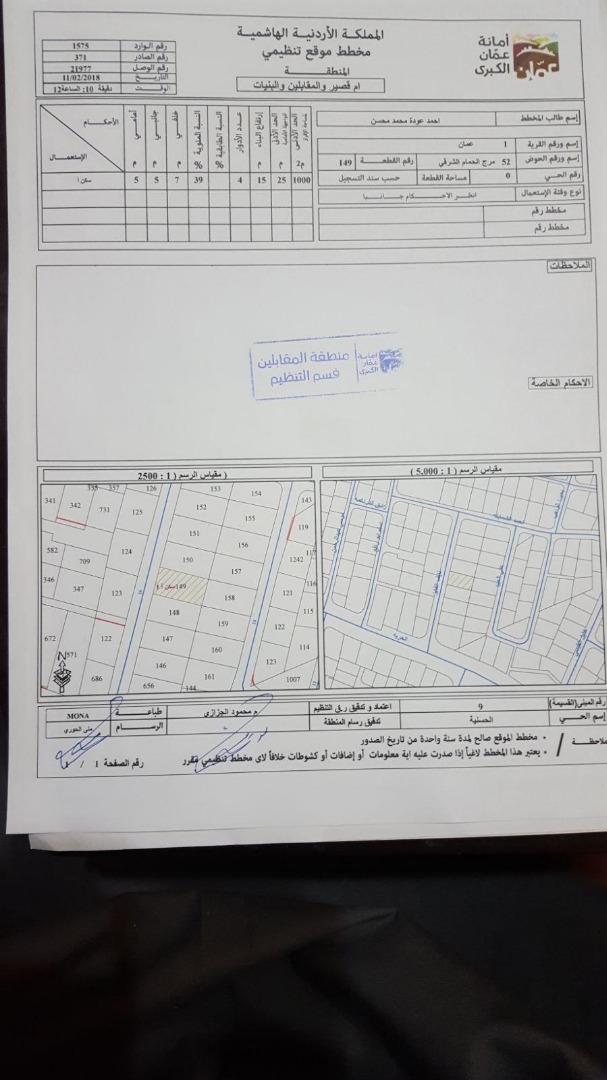 المملكة الأردنية الهاشمية
مخطط موقع تنظيمي
المنطقة
ام قصير والمقابلين والبنيات
أمانة
عمّان
الكبرى
عمّان
رقم الوارد 1575
رقم الصادر 371
رقم الوصل 21977
التاريخ 11/02/2018
الوقت دقيقة 10: الساعة 12
إسم طالب المخطط احمد عودة محمد محسن
إسم ورقم القرية 1 عمان
إسم ورقم الحوض 52 مرج الحمام الشرقي رقم القطعة 149
رقم الحي 0 مساحة القطعة حسب سند التسجيل
نوع وفئة الإستعمال انظر الاحكام جانبا
مخطط رقم
مخطط رقم
الحد الأدنى م2
الحد الأدنى م
إرتفاع البناء م
عدد الأدوار
النسبة الطابقية %
النسبة المئوية %
خلفي م
جانبي م
أمامي م
الأحكام
الإستعمال
1000 25 15 4 39 7 5 5 سكن أ
الملاحظات
أمانة عمّان الكبرى
منطقة المقابلين
قسم التنظيم
الاحكام الخاصة
مقياس الرسم ( 1 : 5,000 )
مقياس الرسم ( 1 : 2500 )
335 357 126 153 154 143
341 342 731 125 152 155 119
151 156
582 709 124 150 1242 117
157
346 347 123 149 سكن أ 158 121 116
148 115
672 122 147 159 122
160 114
571 146 123
N
686 656 144 161 1007
الحرية
رقم المبنى (القسيمة) 9 اعتماد و تدقيق ر.ق التنظيم م محمود الجزازي طباعة MONA
إسم الحي الحسنية تدقيق رسام المنطقة الرسام منى الحوري
ملاحظة /
• مخطط الموقع صالح لمدة سنة واحدة من تاريخ الصدور
• يعتبر هذا المخطط لاغياً إذا صدرت عليه اية معلومات أو إضافات أو كشوطات خلافاً لاى مخطط تنظيمي مقرر
رقم الصفحة 1 / 1